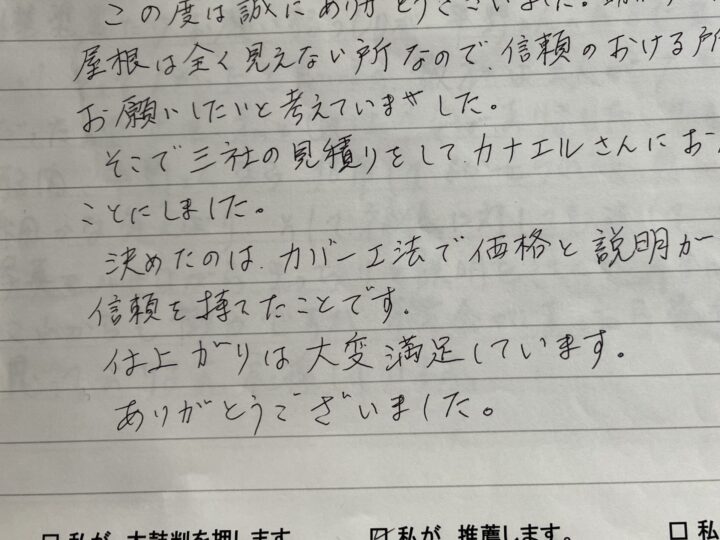 この度は誠にありがとうございました。
屋根は全く見えない所なので、信頼のおける所
お願いしたいと考えていました。
そこで三社の見積りをして、カナエルさんにお
ことにしました。
決めたのは、カバー工法で価格と説明が
信頼を持てたことです。
仕上がりは大変満足しています。
ありがとうございました。
□ 私が、太鼓判を押します ☑ 私が、推薦します。 □ 私